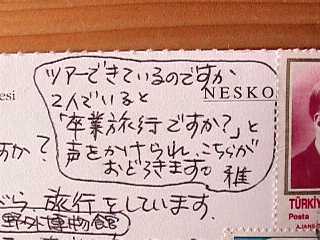 ツアーできているのですか
2人でいると
「卒業旅行ですか?」と
声をかけられ、こちらが
おどろきます。雅
NESKO
esi
すか?
がら、旅行をしています.
野外博物館
TÜRKİY
Posta
AJANS-T